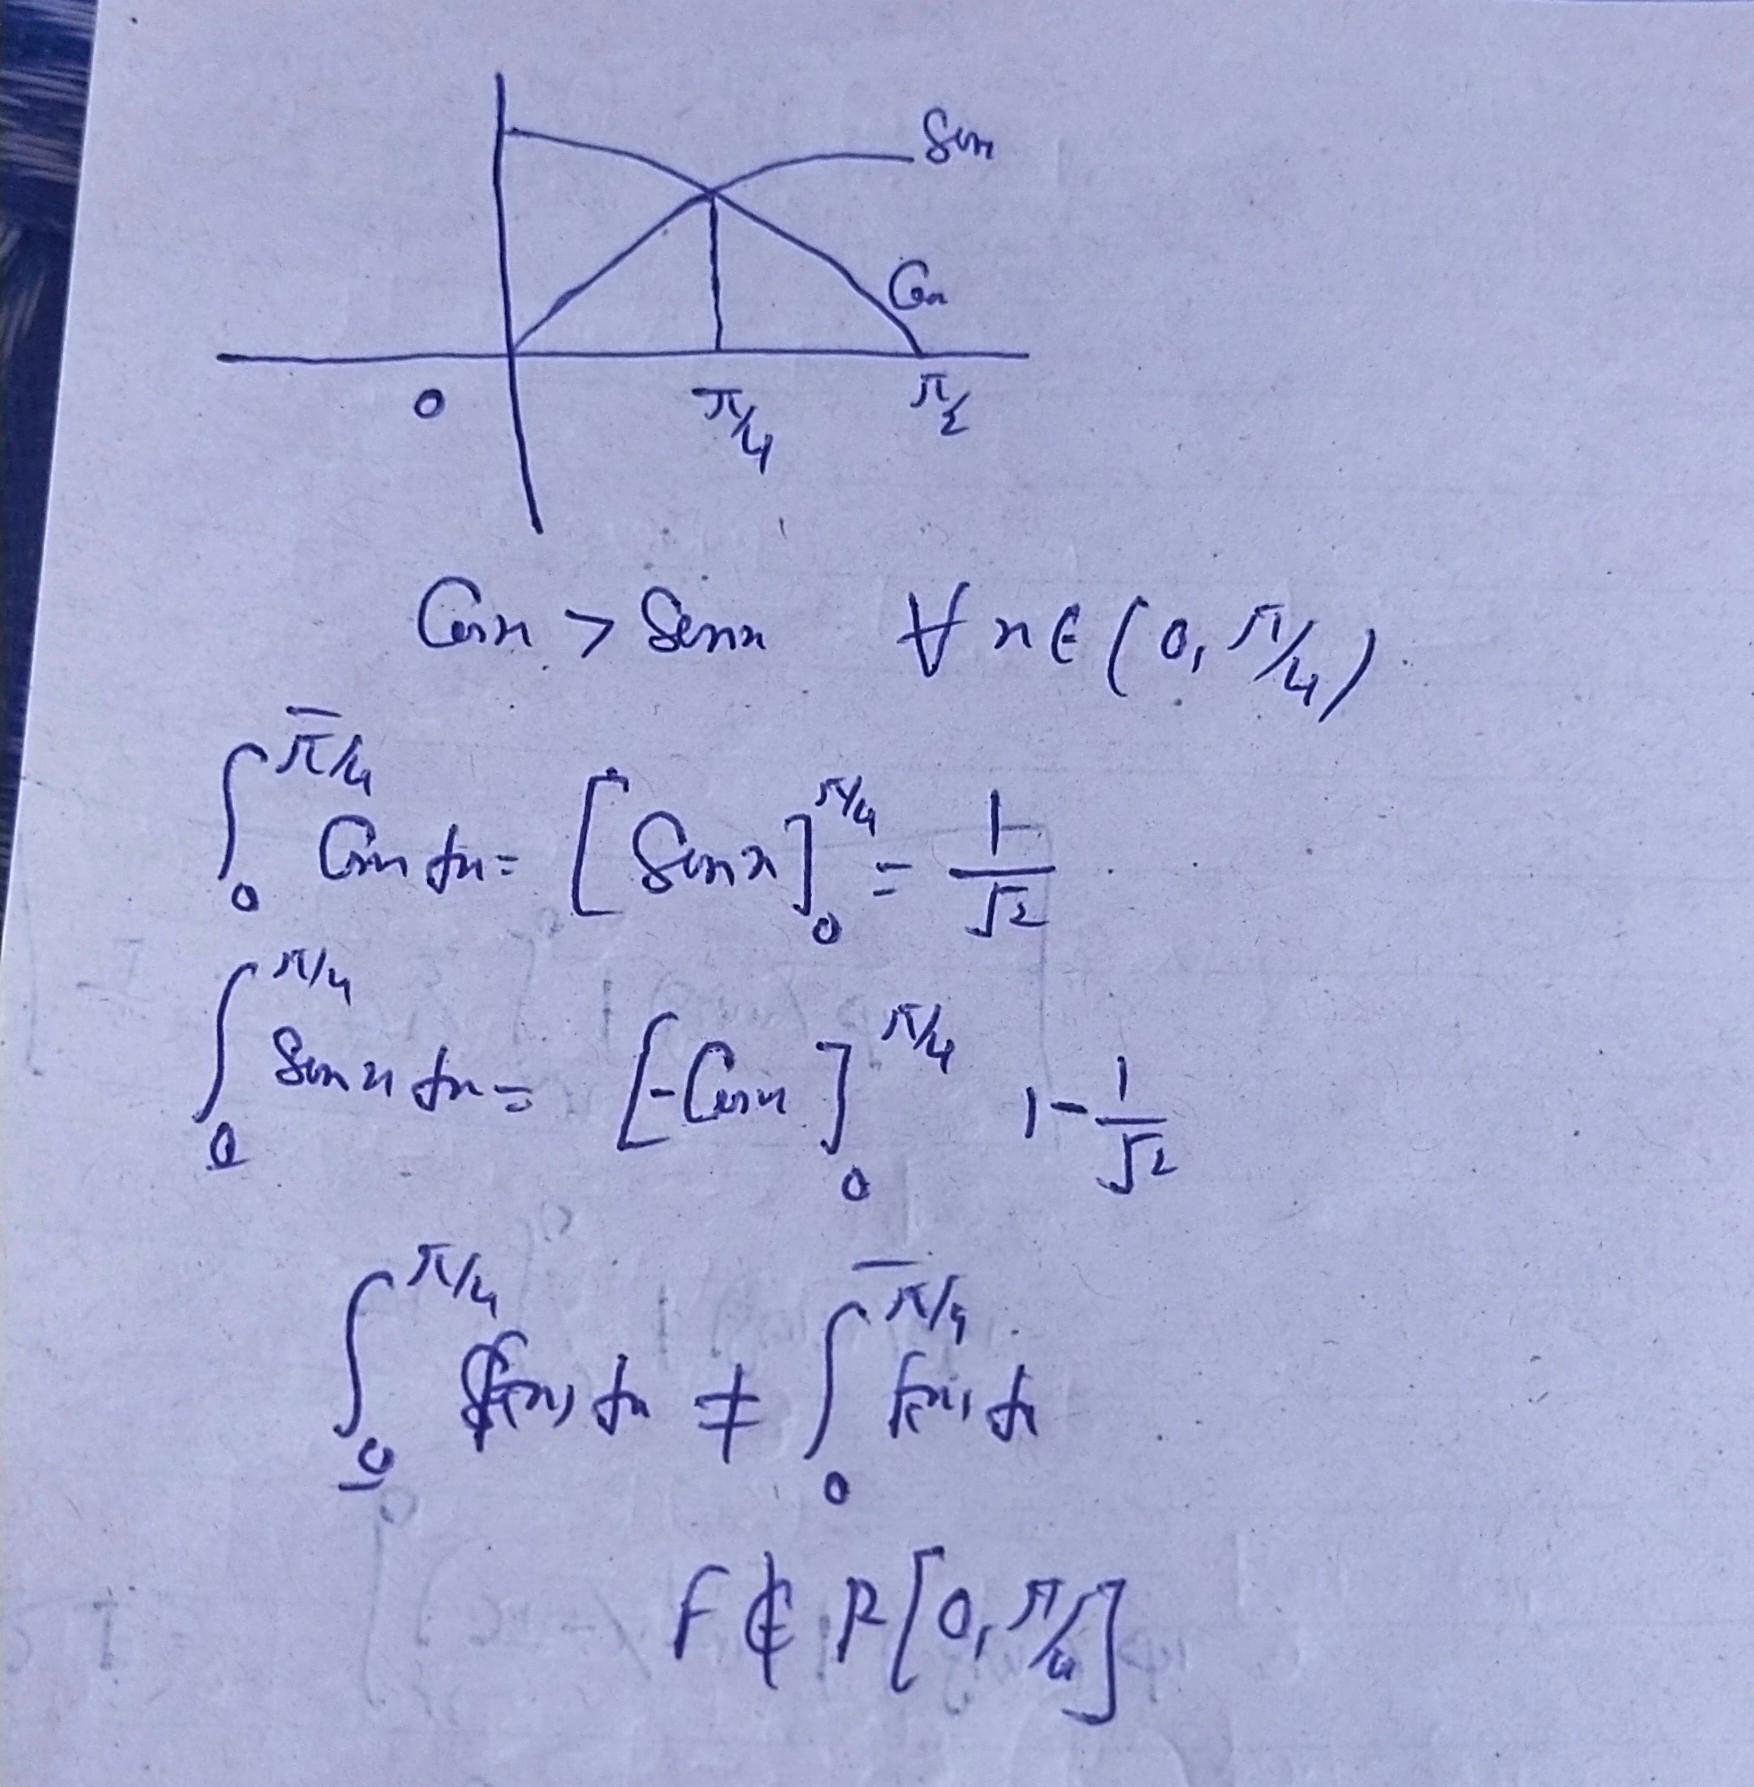 Sinx
Cosx
0 π/4 π/2
Cosx > Sinx ∀ x ∈ (0, π/4)
∫₀^‾π/4 Cosx dx = [Sinx]₀^π/4 = 1/√2
∫₀^π/4 Sinx dx = [-Cosx]₀^π/4 1 - 1/√2
∫₀^π/4 f(x) dx ≠ ∫₀^‾π/4 f(x) dx
F ∉ R[0, π/4]